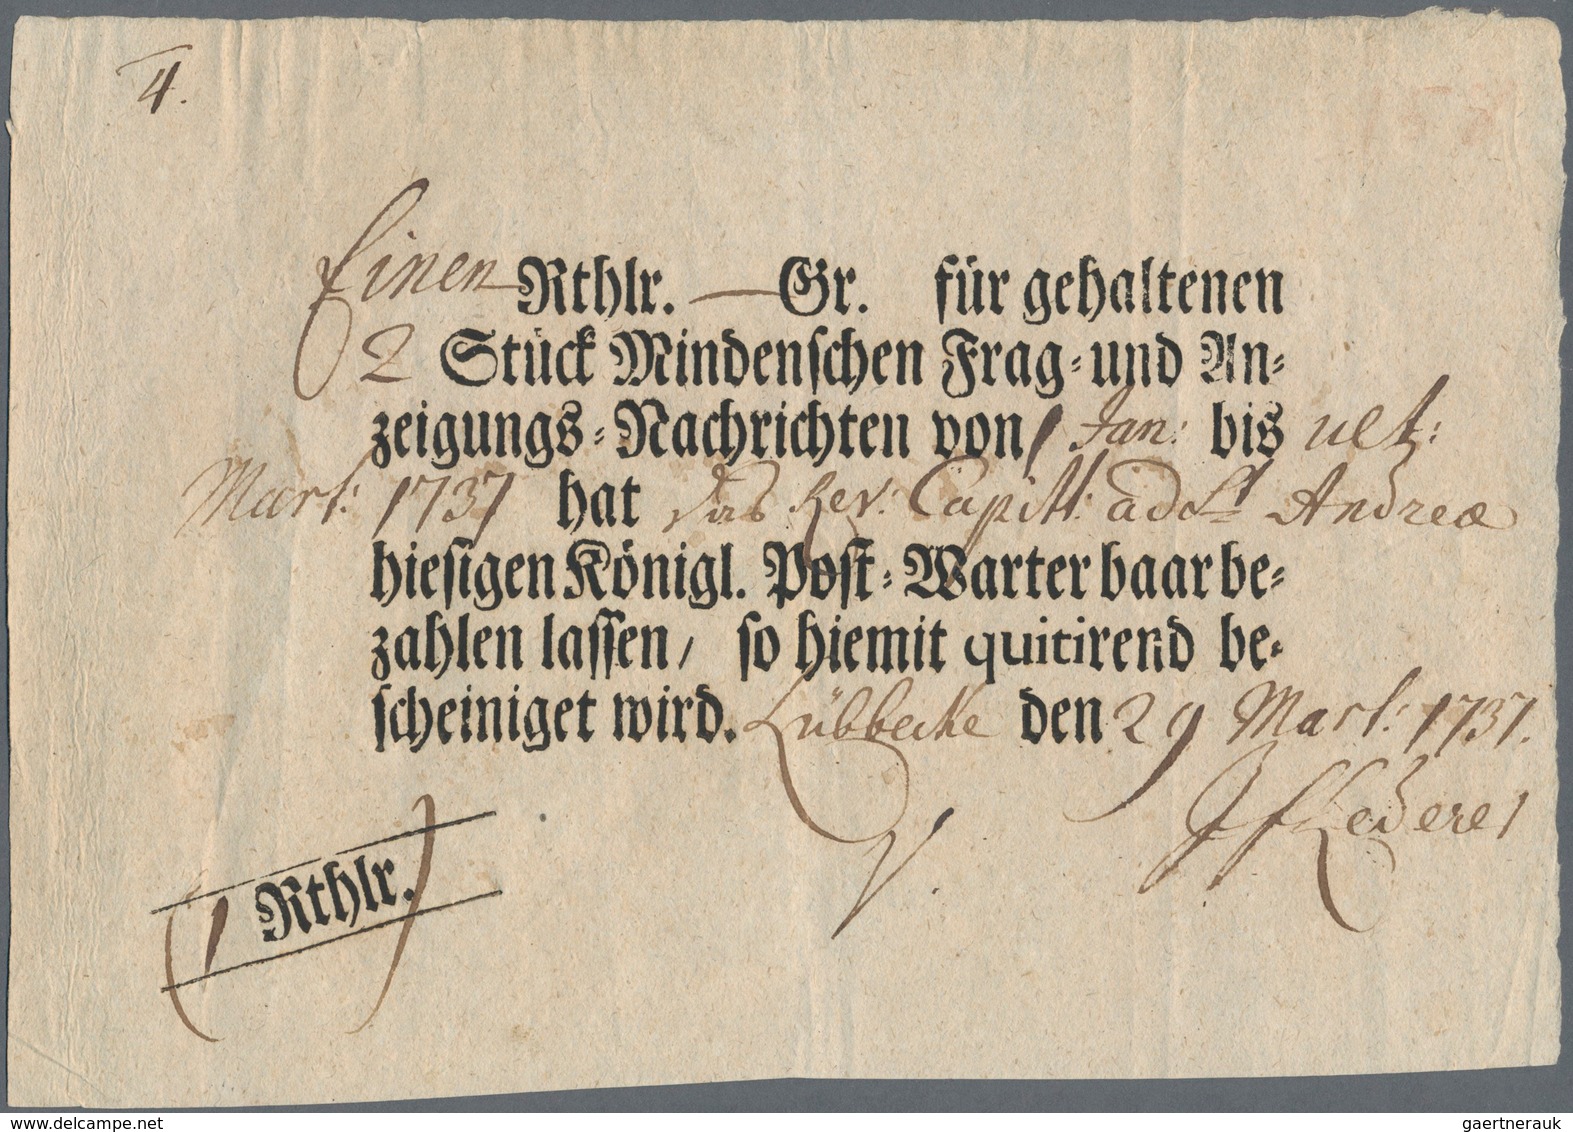 4.
Einen Rthlr. — Gr. für gehaltenen
2 Stück Mindenschen Frag- und An-
zeigungs-Nachrichten von 1 Jan: bis ult:
Mart: 1737 hat das Rev: Capitt: ad St Andreæ
hiesigen Königl. Post-Warter baar be-
zahlen lassen, so hiemit quitirend be-
scheiniget wird. Lübbecke den 29 Mart: 1737.
(1 Rthlr.)
www.delcampe.net
gaertnerauk